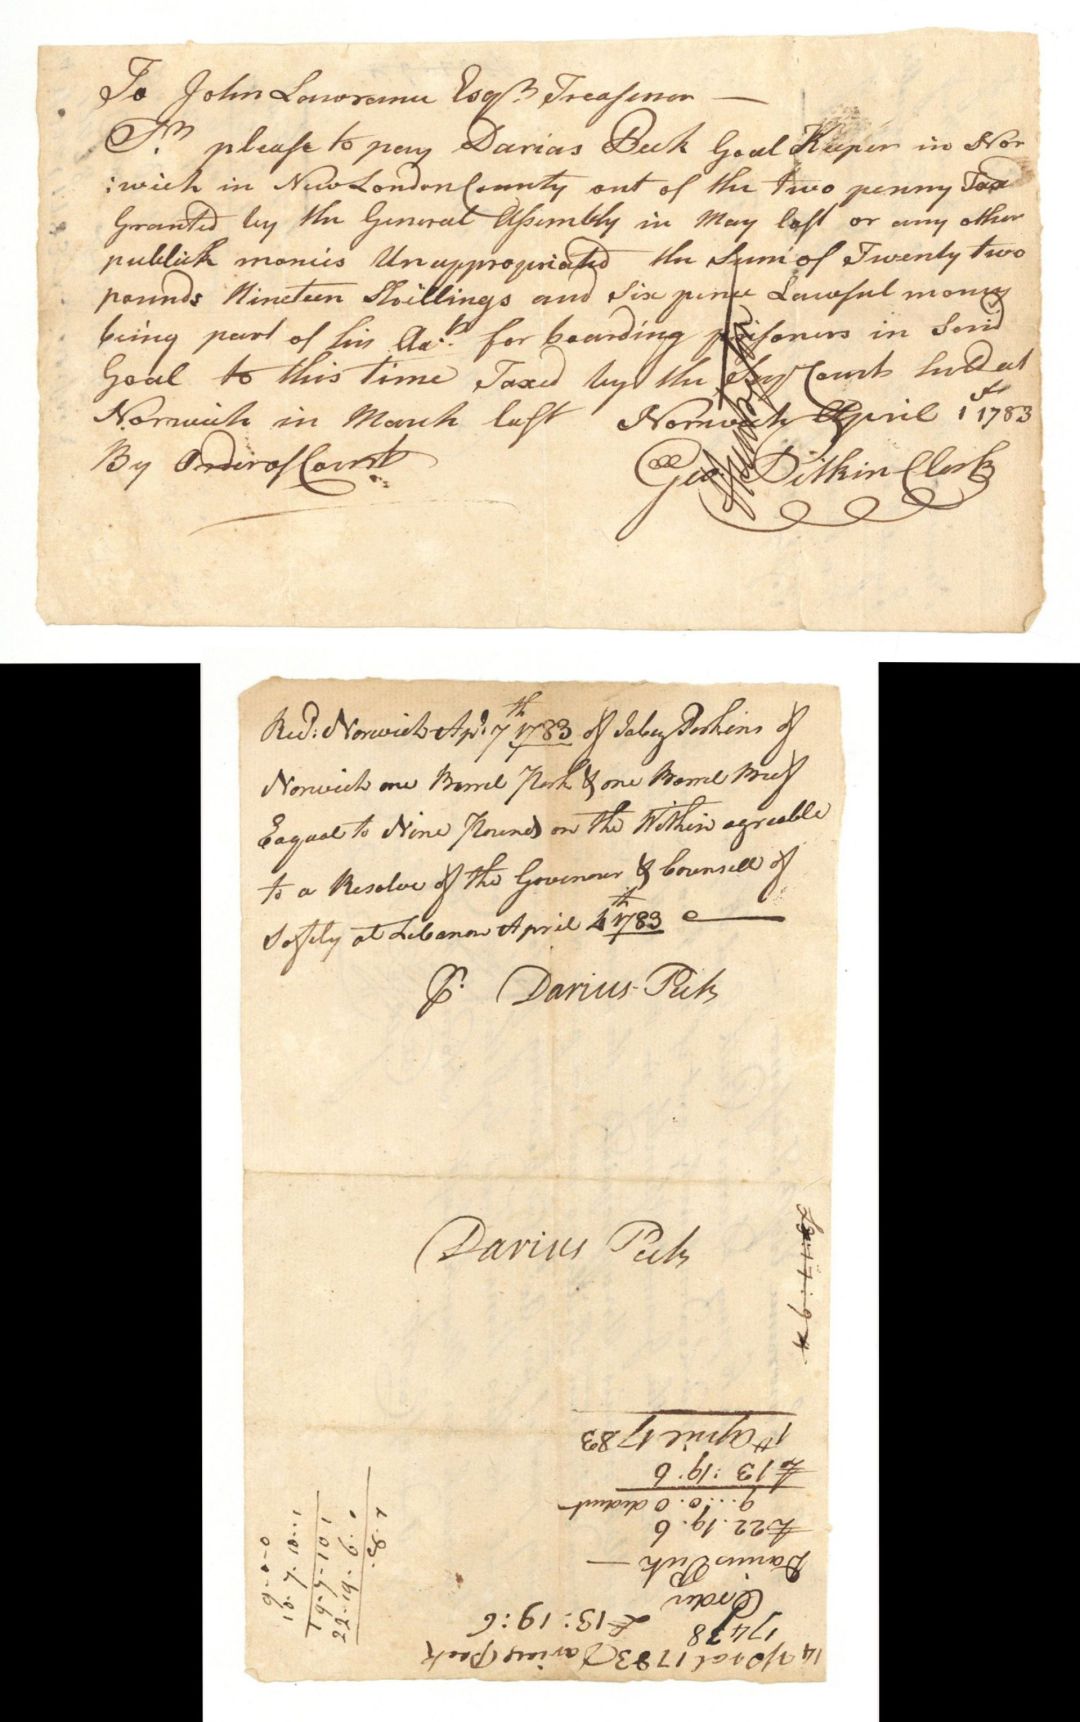 To John Lawrance Esqr. Treasurer —
Sr. please to pay Darias Peck Goal Keeper in Nor
:wich in New London County out of the two penny Tax
Granted by the General Assembly in May last or any other
publick monies Unappropriated the Sum of Twenty two
pounds Nineteen Shillings and Six pence Lawful money
being part of his Act. for boarding prisoners in Said
Goal to this time Taxed by the County Court held at
Norwich in March last Norwich April 1st 1783
By Order of Court Geo. Pitkin Clerk
Recd. Norwich Apl. 7th 1783 of Jabez Perkins of
Norwich one Barrel Pork & one Barrel Beef
Eaqual to Nine Pounds on the Within agreable
to a Resolve of the Govenour & Counsell of
Safety at Lebanon April 4th 1783
Pr. Darius Peck
Darius Peck
14 April 1783 Darius Peck
£13:19:6
17438
Order
Darius Peck —
£22.19.6
9..0.0 deduct
£13:19.6
1st April 1783
9-0-0
10.7.10..1
19-7-10 1
22-19.6.0